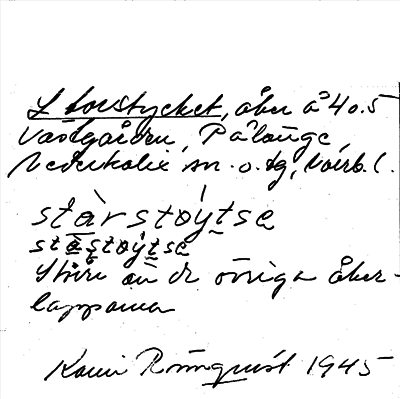 Storstycket, åker å 40.5
Västgården, Pålänge,
Nederkalix sn. o. tg, Norrb. l.
stàrstøýtse
stàştøýtse
Större än de övriga åker-
lapparna
Rönnquist 1945